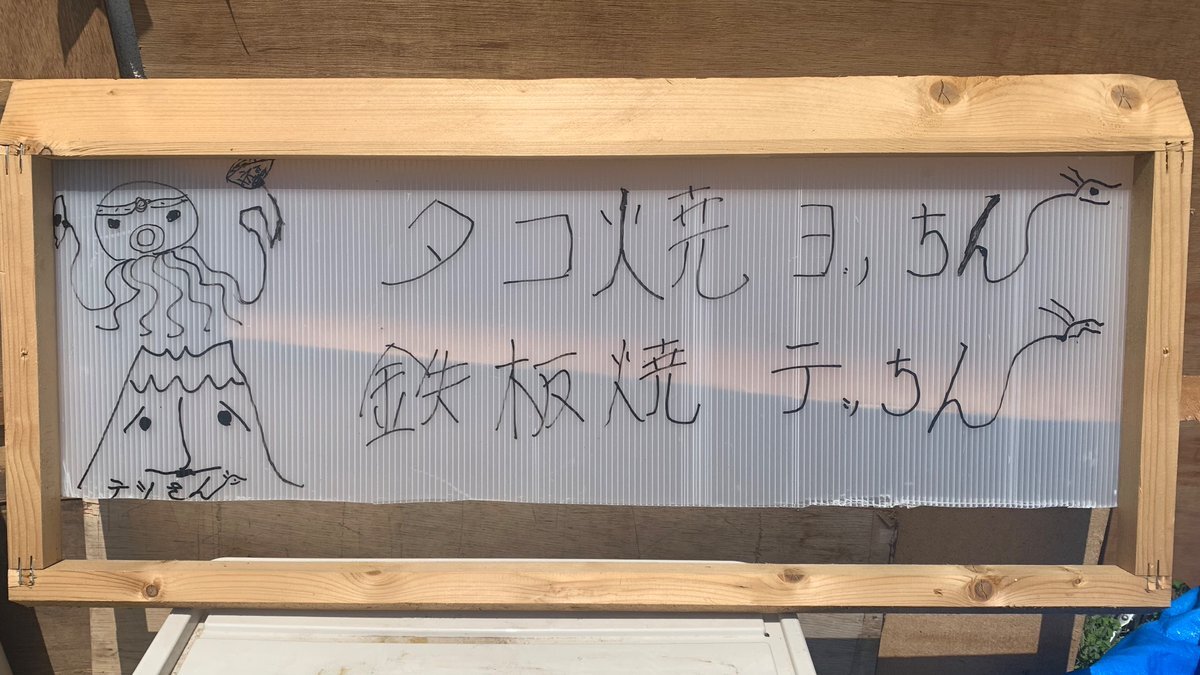 タコ焼 ヨッちん
鉄板焼 テッちん
テツさん